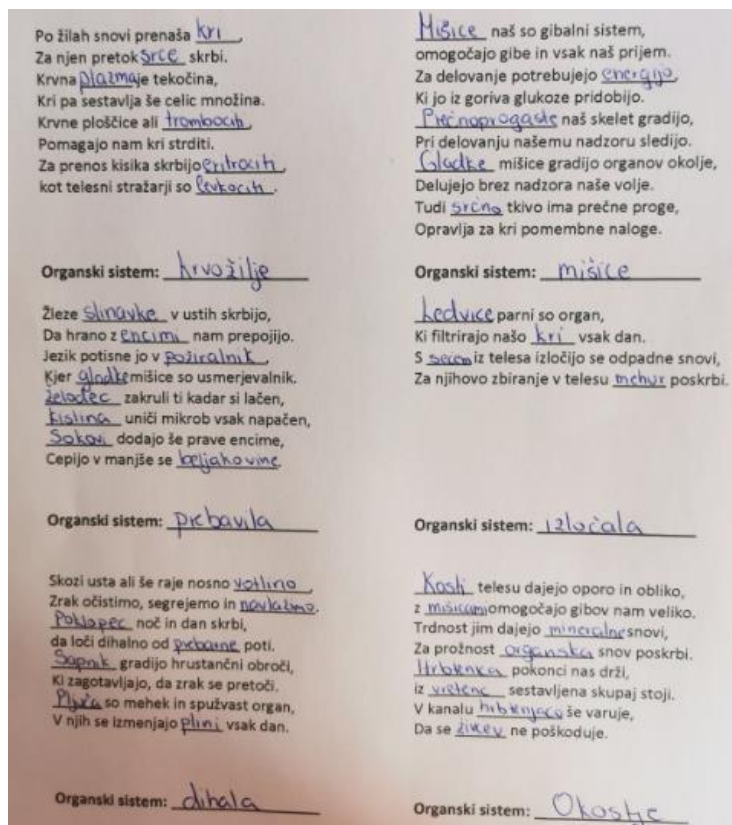 Po žilah snovi prenaša kri,
Za njen pretok srce skrbi.
Krvna plazma je tekočina,
Kri pa sestavlja še celic množina.
Krvne ploščice ali trombociti,
Pomagajo nam kri strditi.
Za prenos kisika skrbijo eritrociti,
kot telesni stražarji so levkociti.
Organski sistem: krvožilje
Žleze slinavke v ustih skrbijo,
Da hrano z encimi nam prepojijo.
Jezik potisne jo v požiralnik,
Kjer gladke mišice so usmerjevalnik.
želodec zakruli ti kadar si lačen,
kislina uniči mikrob vsak napačen,
Sokovi dodajo še prave encime,
Cepijo v manjše se beljakovine
Organski sistem: prebavila
Skozi usta ali še raje nosno votlino,
Zrak očistimo, segrejemo in navlažimo.
Poklopec noč in dan skrbi,
da loči dihalno od prebavne poti.
Sapnik gradijo hrustančni obroči,
Ki zagotavljajo, da zrak se pretoči.
Pljuča so mehek in spužvast organ,
V njih se izmenjajo plini vsak dan.
Organski sistem: dihala
Mišice naš so gibalni sistem,
omogočajo gibe in vsak naš prijem.
Za delovanje potrebujejo energijo,
Ki jo iz goriva glukoze pridobijo.
Prečnoprogaste naš skelet gradijo,
Pri delovanju našemu nadzoru sledijo.
Gladke mišice gradijo organov okolje,
Delujejo brez nadzora naše volje.
Tudi srčno tkivo ima prečne proge,
Opravlja za kri pomembne naloge.
Organski sistem: mišice
Ledvice parni so organ,
Ki filtrirajo našo kri vsak dan.
S sečem iz telesa izločijo se odpadne snovi,
Za njihovo zbiranje v telesu mehur poskrbi.
Organski sistem: izločala
Kosti telesu dajejo oporo in obliko,
z mišicami omogočajo gibov nam veliko.
Trdnost jim dajejo mineralne snovi,
Za prožnost organska snov poskrbi.
Hrbtenica pokonci nas drži,
iz vretenc sestavljena skupaj stoji.
V kanalu hrbtenjačo še varuje,
Da se živčev ne poškoduje.
Organski sistem: Okostje